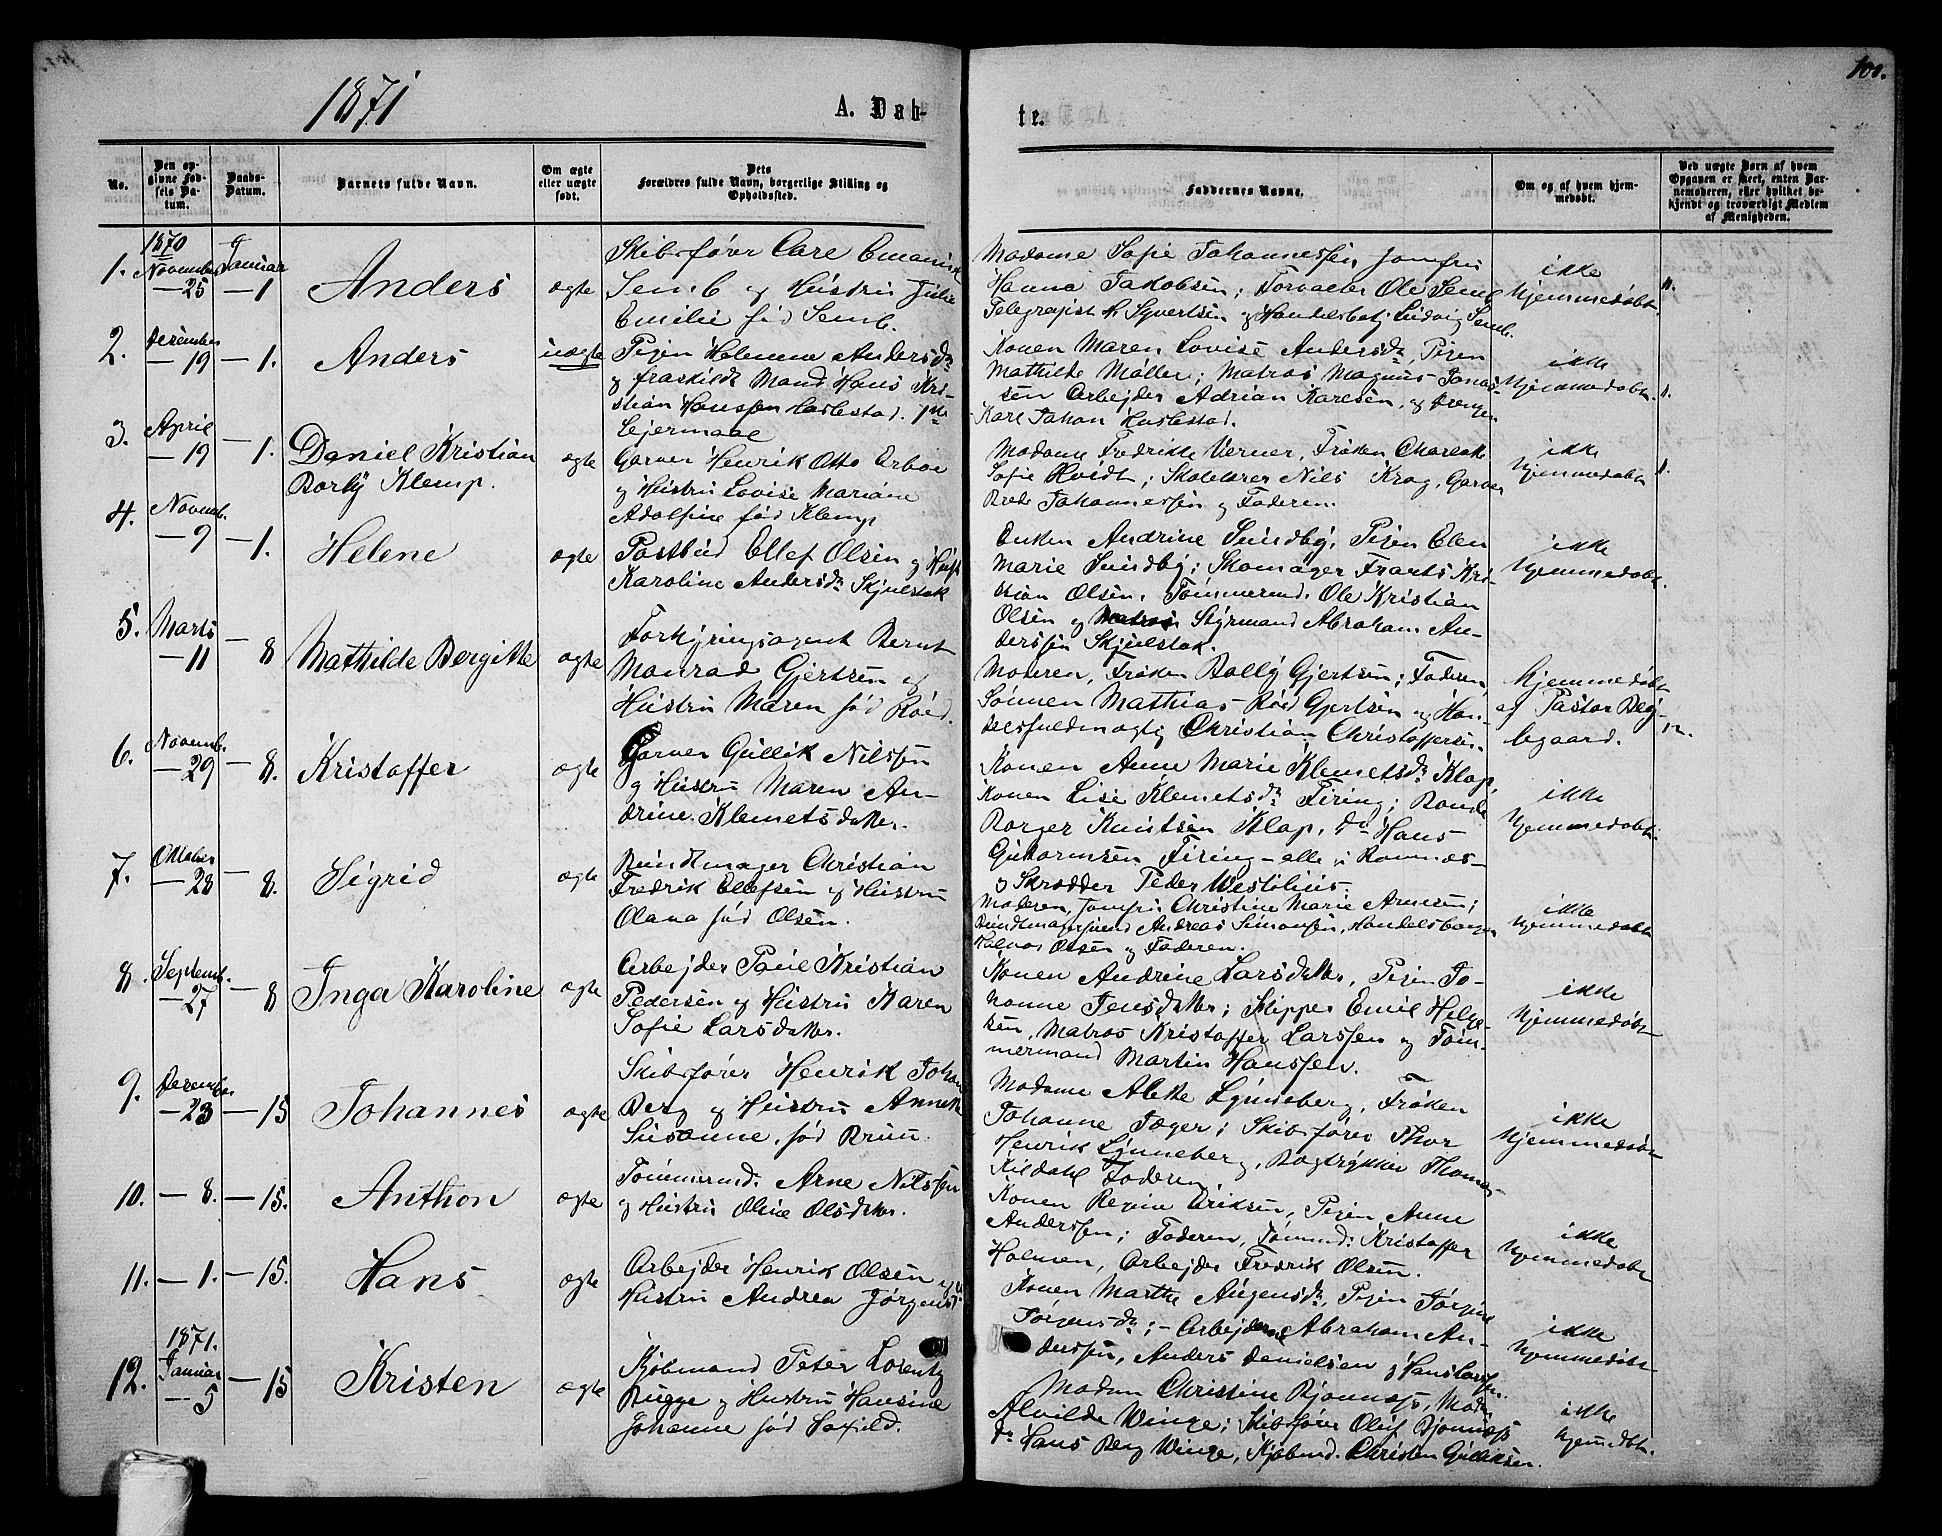 1871
A. Døb-
te.
100.
No.
Den op-
givne Fød-
sels Da-
tum.
Daabs-
Datum.
Barnets fulde Navn.
Om ægte
eller uægte
født.
Dets
Forældres fulde Navn, borgerlige Stilling og
Opholdssted.
Faddernes Navne.
Om og af hvem hjem-
medøbt.
Ved uægte Børn af hvem
Opgaven er skeet, enten Bar-
nemoderen, eller hvilket be-
kjendt og troværdigt Medlem
af Menigheden.
1. 1870 November 25 Januar 1 Anders ægte
Skibsfører Carl Emanuel
Semb og Hustru Julie
Emilie fød Semb.
Madame Sofie Johannessen, Jomfru
Hanna Jakobsen; Forvalter Ole Semb
Telegrafist Syvertsen og Handelsbetj Ludvig Semb.
ikke
hjemmedøbt
2. Desember 19 1. Anders uægte
Pigen Helene Andersdr
og fraskildt Mand Hans Kri-
stian Hanssen Haslestad. 1ste
Lejermaal
Konen Maren Lovise Andersdr, Pigen
Mathilde Møller; Matros Magnus Jonas-
sen Arbejder Adrian Karlsen, og Drengen
Karl Johan Haslestad.
ikke
hjemmedøbt
3. April 19 1. Daniel Kristian
Borby Klemp. ægte
Garver Henrik Otto Erboe
og Hustru Lovise Mariane
Adolfine fød Klemp
Madame Fredrikke Verner, Frøken Charlotte
Sofie Hvidt; Skolelærer Nils Krog, Garver
Johannessen og Faderen.
ikke
hjemmedøbt
4. Novemb. 9 1. Helene ægte
Postbud Ellef Olsen og Hust
Karoline Andersdr Skjelstok
Enken Andrine Sundby, Pigen Elen
Marie Sundby; Skomager Frants Kri-
stian Olsen, Tømmermd. Ole Kristian
Olsen og Styrmand Abraham An-
derssen Skjelstok.
ikke
hjemmedøbt
5. Marts 11 8 Mathilde Bergitte ægte
Forhyringsagent Bernt
Monrad Gjertsen og
Hustru Maren fød Røed.
Moderen, Frøken Bolly Gjertsen; Faderen,
Sønnen Mathias Røed Gjertsen og Han-
delsfuldmægtig Christian Christoffersen.
hjemmedøbt
af Pastor Bly-
begaard.
6. Novemb. 29 8. Kristoffer ægte
Garver Gullik Nilssen
og Hustru Maren An-
drine Klemetsdatter.
Konen Anne Marie Klemetsdr Klop,
Konen Lise Klemetsdr Firing; Bonde
Borger Knutsen Klop, do Hans
Guttormsen Firing – alle i Ramnes –
og Skrædder Peder Westolius.
ikke
hjemmedøbt
7. Oktober 28 8. Sigrid ægte
Bundtmager Christian
Fredrik Ellefsen og Hustru
Olava fød Olsen.
Moderen, Jomfru Christine Marie Arnesen;
Bundtmagersvend Andreas Simonsen, Handelsborger
Olsen og Faderen.
ikke
hjemmedøbt
8. Septemb. 27 8 Inga Karoline ægte
Arbejder Paul Kristian
Pedersen og Hustru Karen
Sofie Larsdatter.
Konen Andrine Larsdatter, Pigen Jo-
hanne Jensdatter; Skipper Emil Helge-
sen, Matros Kristoffer Larssen og Tøm-
mermand Martin Hanssen.
ikke
hjemmedøbt
9. Desember 23 15 Johannes ægte
Skibsfører Henrik Johan
Berg og Hustru Annette
Susanne, fød Bruun.
Madame Alette Lynneberg, Frøken
Johanne Jæger; Skibsfører Thor
Henrik Lynneberg, Bogtrykker Thomas
Kildahl Faderen.
ikke
hjemmedøbt
10. 8. 15. Anthon ægte
Tømmermd. Arne Nilssen
og Hustru Oline Olsdatter.
Konen Regine Eriksen, Pigen Anne
Anderssen; Faderen, Tømmd: Kristoffer
Holmen, Arbejder Fredrik Olsen.
ikke
hjemmedøbt
11. 1. 15. Hans ægte
Arbejder Henrik Olsen og
Hustru Andrea Jørgensdr
Konen Marthe Augensdr, Pigen Jørgine
Jørgensdr; – Arbejderne Abraham An-
derssen, Anders Danielsen og Hans Larssen.
ikke
hjemmedøbt
12. 1871. Januar 5 15 Kristen ægte
Kjøbmand Peter Lorentz
Bugge og Hustru Hansine
Johanne fød Hofild.
Madam Christine Bjønness, Mad.
Alvilde Winge; Skibsfører Oluf Bjønness
do Hans Berg Winge, Kjøbmd. Christen Gulliksen.
ikke
hjemmedøbt.